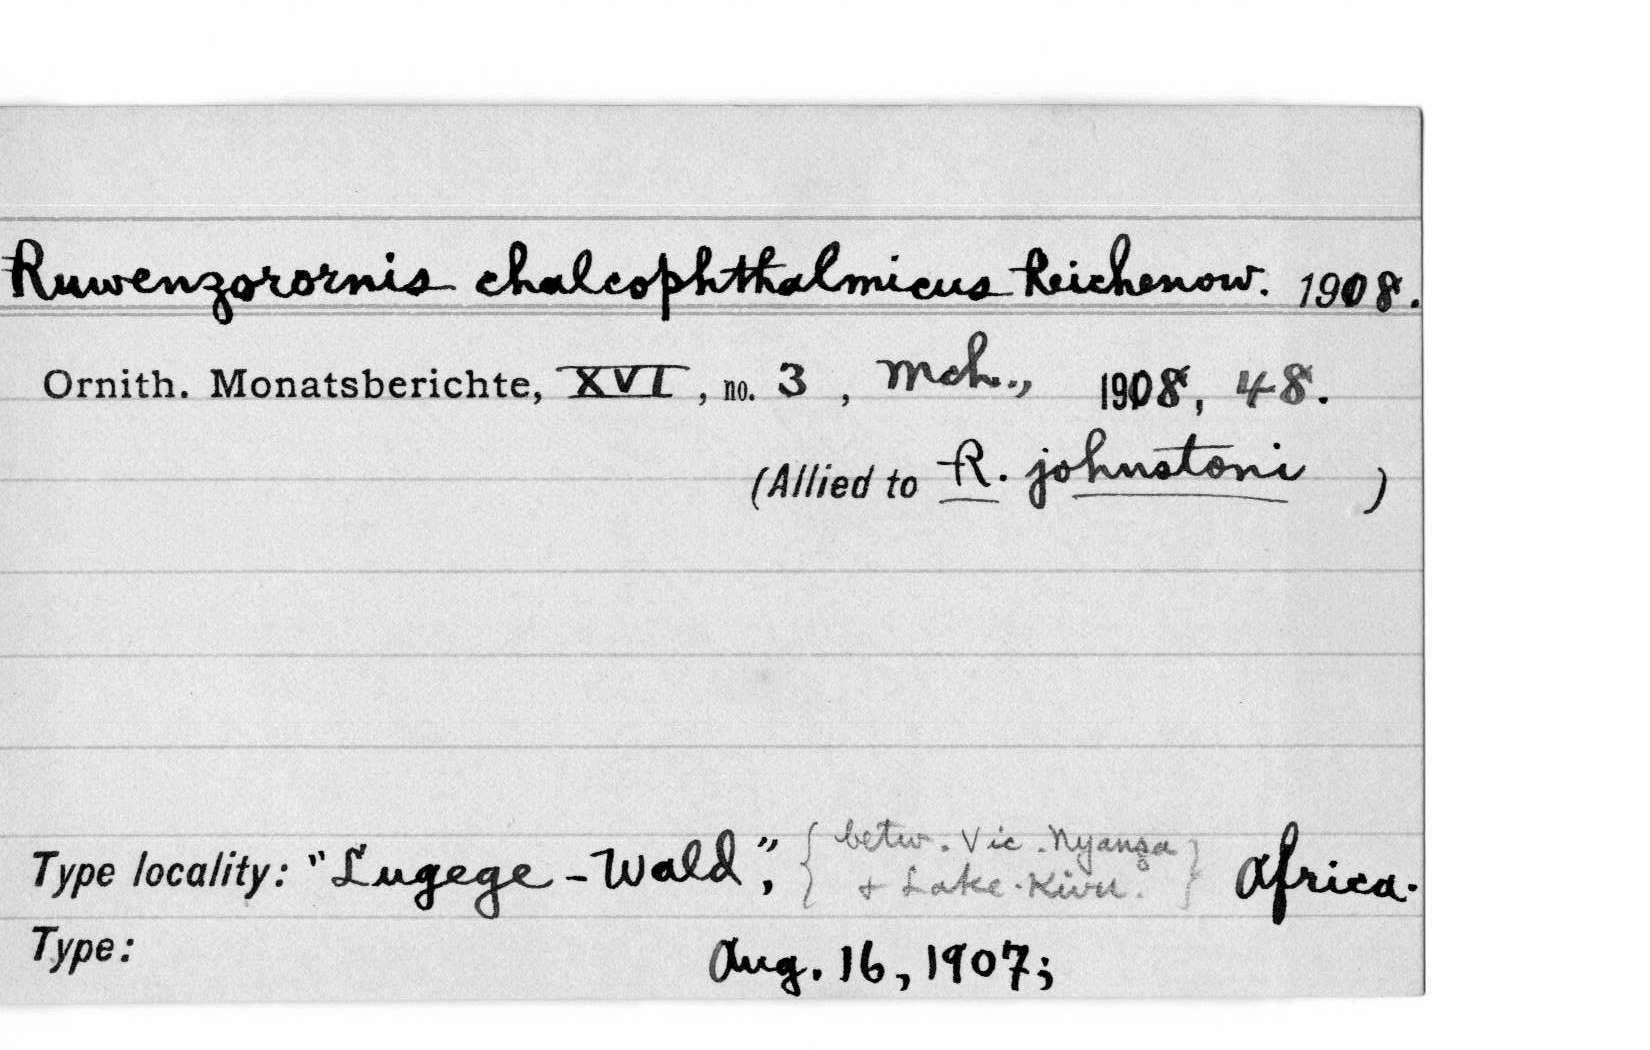 Ruwenzorornis chalcophthalmicus Reichenow. 1908.
Ornith. Monatsberichte, XVI, no. 3, Mch., 1908, 48.
(Allied to R. johnstoni)
Type locality: "Lugege-Wald", {betw. Vic. Nyanza
& Lake Kivu.} Africa.
Type: Aug. 16, 1907;